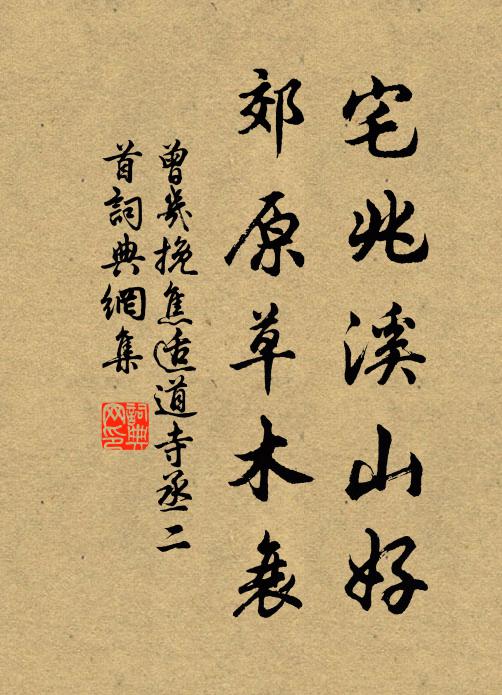 宅兆溪山好
郊原草木衰
曾幾挽焦适道寺丞二
首詞典網集
詞典
网印